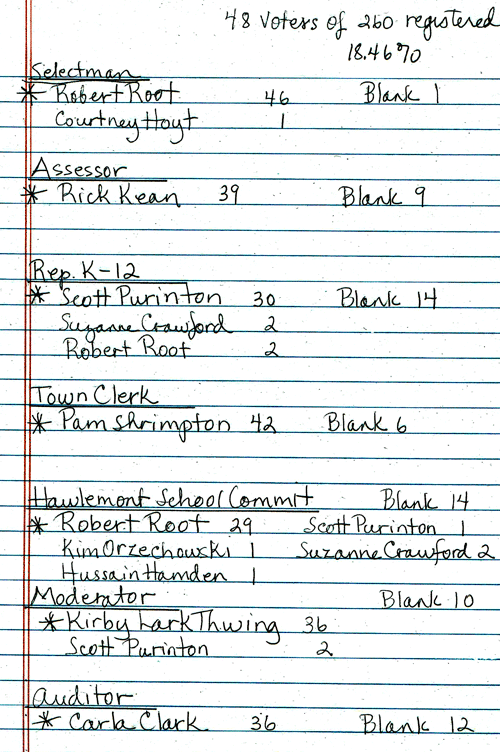 48 Voters of 260 registered
18.46%
Selectman
* Robert Root 46 Blank 1
Courtney Hoyt 1
Assessor
* Rick Kean 39 Blank 9
Rep. K-12
* Scott Purinton 30 Blank 14
Suzanne Crawford 2
Robert Root 2
Town Clerk
* Pam Shrimpton 42 Blank 6
Hawlemont School Commit Blank 14
* Robert Root 29 Scott Purinton 1
Kim Orzechowski 1 Suzanne Crawford 2
Hussain Hamden 1
Moderator Blank 10
* Kirby Lark Thwing 36
Scott Purinton 2
Auditor
* Carla Clark 36 Blank 12